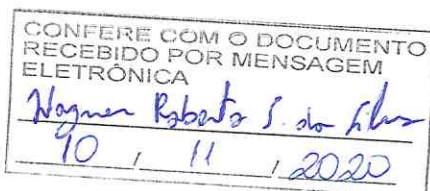 CONFERE COM O DOCUMENTO
RECEBIDO POR MENSAGEM
ELETRÔNICA
Wagner Roberto S. da Silva
10 / 11 / 2020